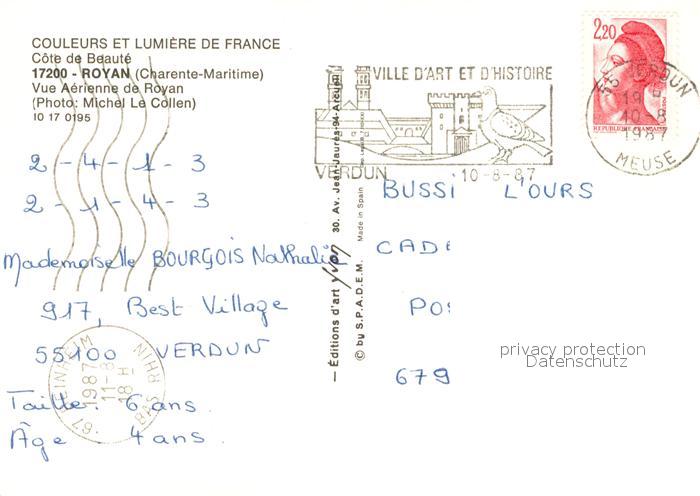 COULEURS ET LUMIÈRE DE FRANCE
Côte de Beauté
17200 - ROYAN (Charente-Maritime)
Vue Aérienne de Royan
(Photo: Michel Le Collen)
10 17 0195
2 - 4 - 1 - 3
2 - 1 - 4 - 3
Mademoiselle BOURGOIS Nathalie
917, Best Village
55100 VERDUN
Taille: 6 ans
Âge: 4 ans
67. EINHEIM
1987
11-8
18 H
BAS RHIN
— Éditions d'art yvon 30. Av. Jean-Jaurès-94-Arcueil
© by S.P.A.D.E.M. Made in Spain
VILLE D'ART ET D'HISTOIRE
VERDUN 10-8-87
2,20
REPUBLIQUE FRANÇAISE
55 VERDUN
19 H
10-8
1987
MEUSE
BUSSI L'OURS
CADE
PO
679
privacy protection
Datenschutz